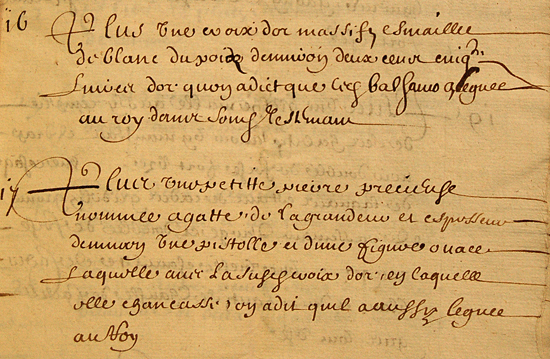 16 Plus une croix d'or massif esmaillee
de blanc du poix denviron deux cens cinq
Louis d'or quon a dict que led Balsamo a leguee
au roy dans son testmant
17 Plus une petitte pierre precieuse
nommee agatte de la grandeur et espesseur
denviron une pistolle et dune figure ovale
Laquelle avec La susd croix dor en laquelle
elle est ancassee on a dit quil a aussy leguee
au Roy